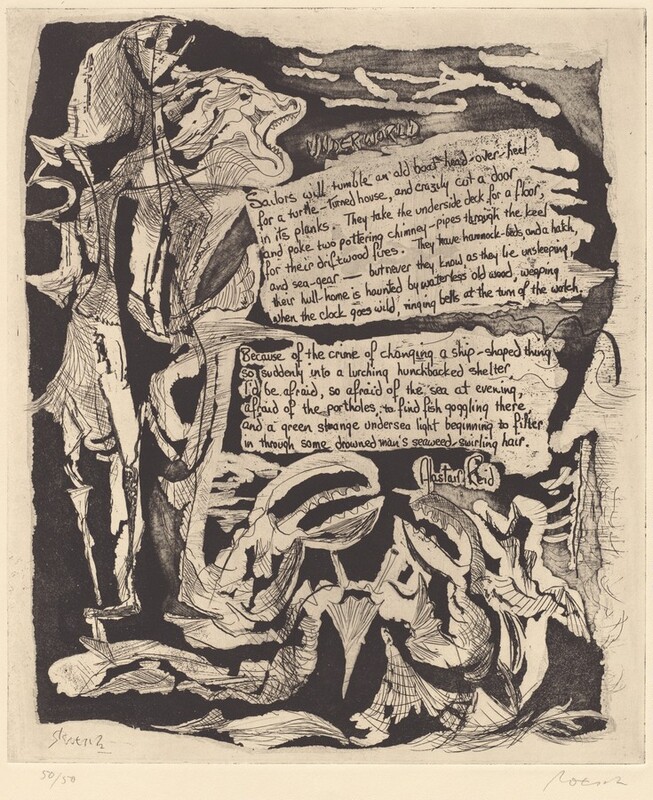 UNDERWORLD
Sailors will tumble an old boat head-over-heel
for a turtle-turned house, and crazily cut a door
in its planks. They take the underside deck for a floor,
and poke two pottering chimney-pipes through the keel
for their driftwood fires. They have hammock-beds and a hatch,
and sea-gear — but never they know as they lie unsleeping,
their hull-home is haunted by waterless old wood, weeping
when the clock goes wild, ringing bells at the turn of the watch.
Because of the crime of changing a ship-shaped thing
so suddenly into a lurching hunchbacked shelter
I'd be afraid, so afraid of the sea at evening,
afraid of the portholes, to find fish goggling there
and a green strange undersea light beginning to filter
in through some drowned man's seaweed-swirling hair.
Alastair Reid
50/50